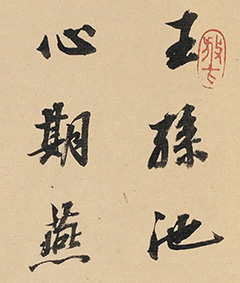 王孫池
心期燕